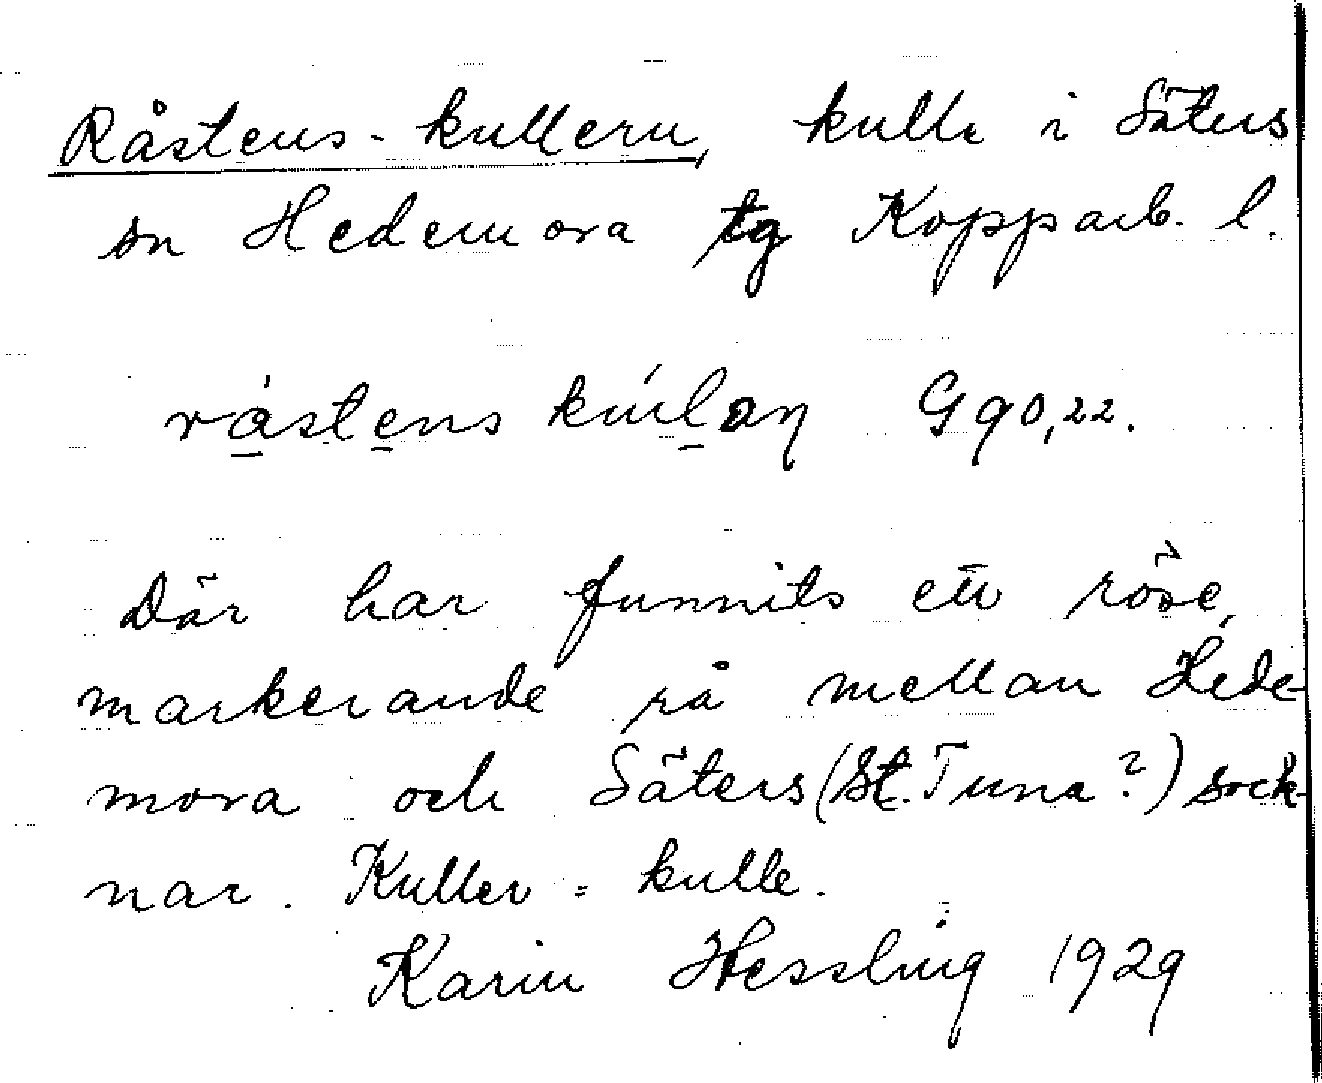 Råstens-kullern, kulle i Säters
sn Hedemora tg Kopparb. l.
råstens kúlən Gg 0,22.
Där har funnits ett röse,
markerande rå mellan Hede-
mora och Säters (St. Tuna?) sock-
nar. Kuller = kulle.
Karin Hessling 1929